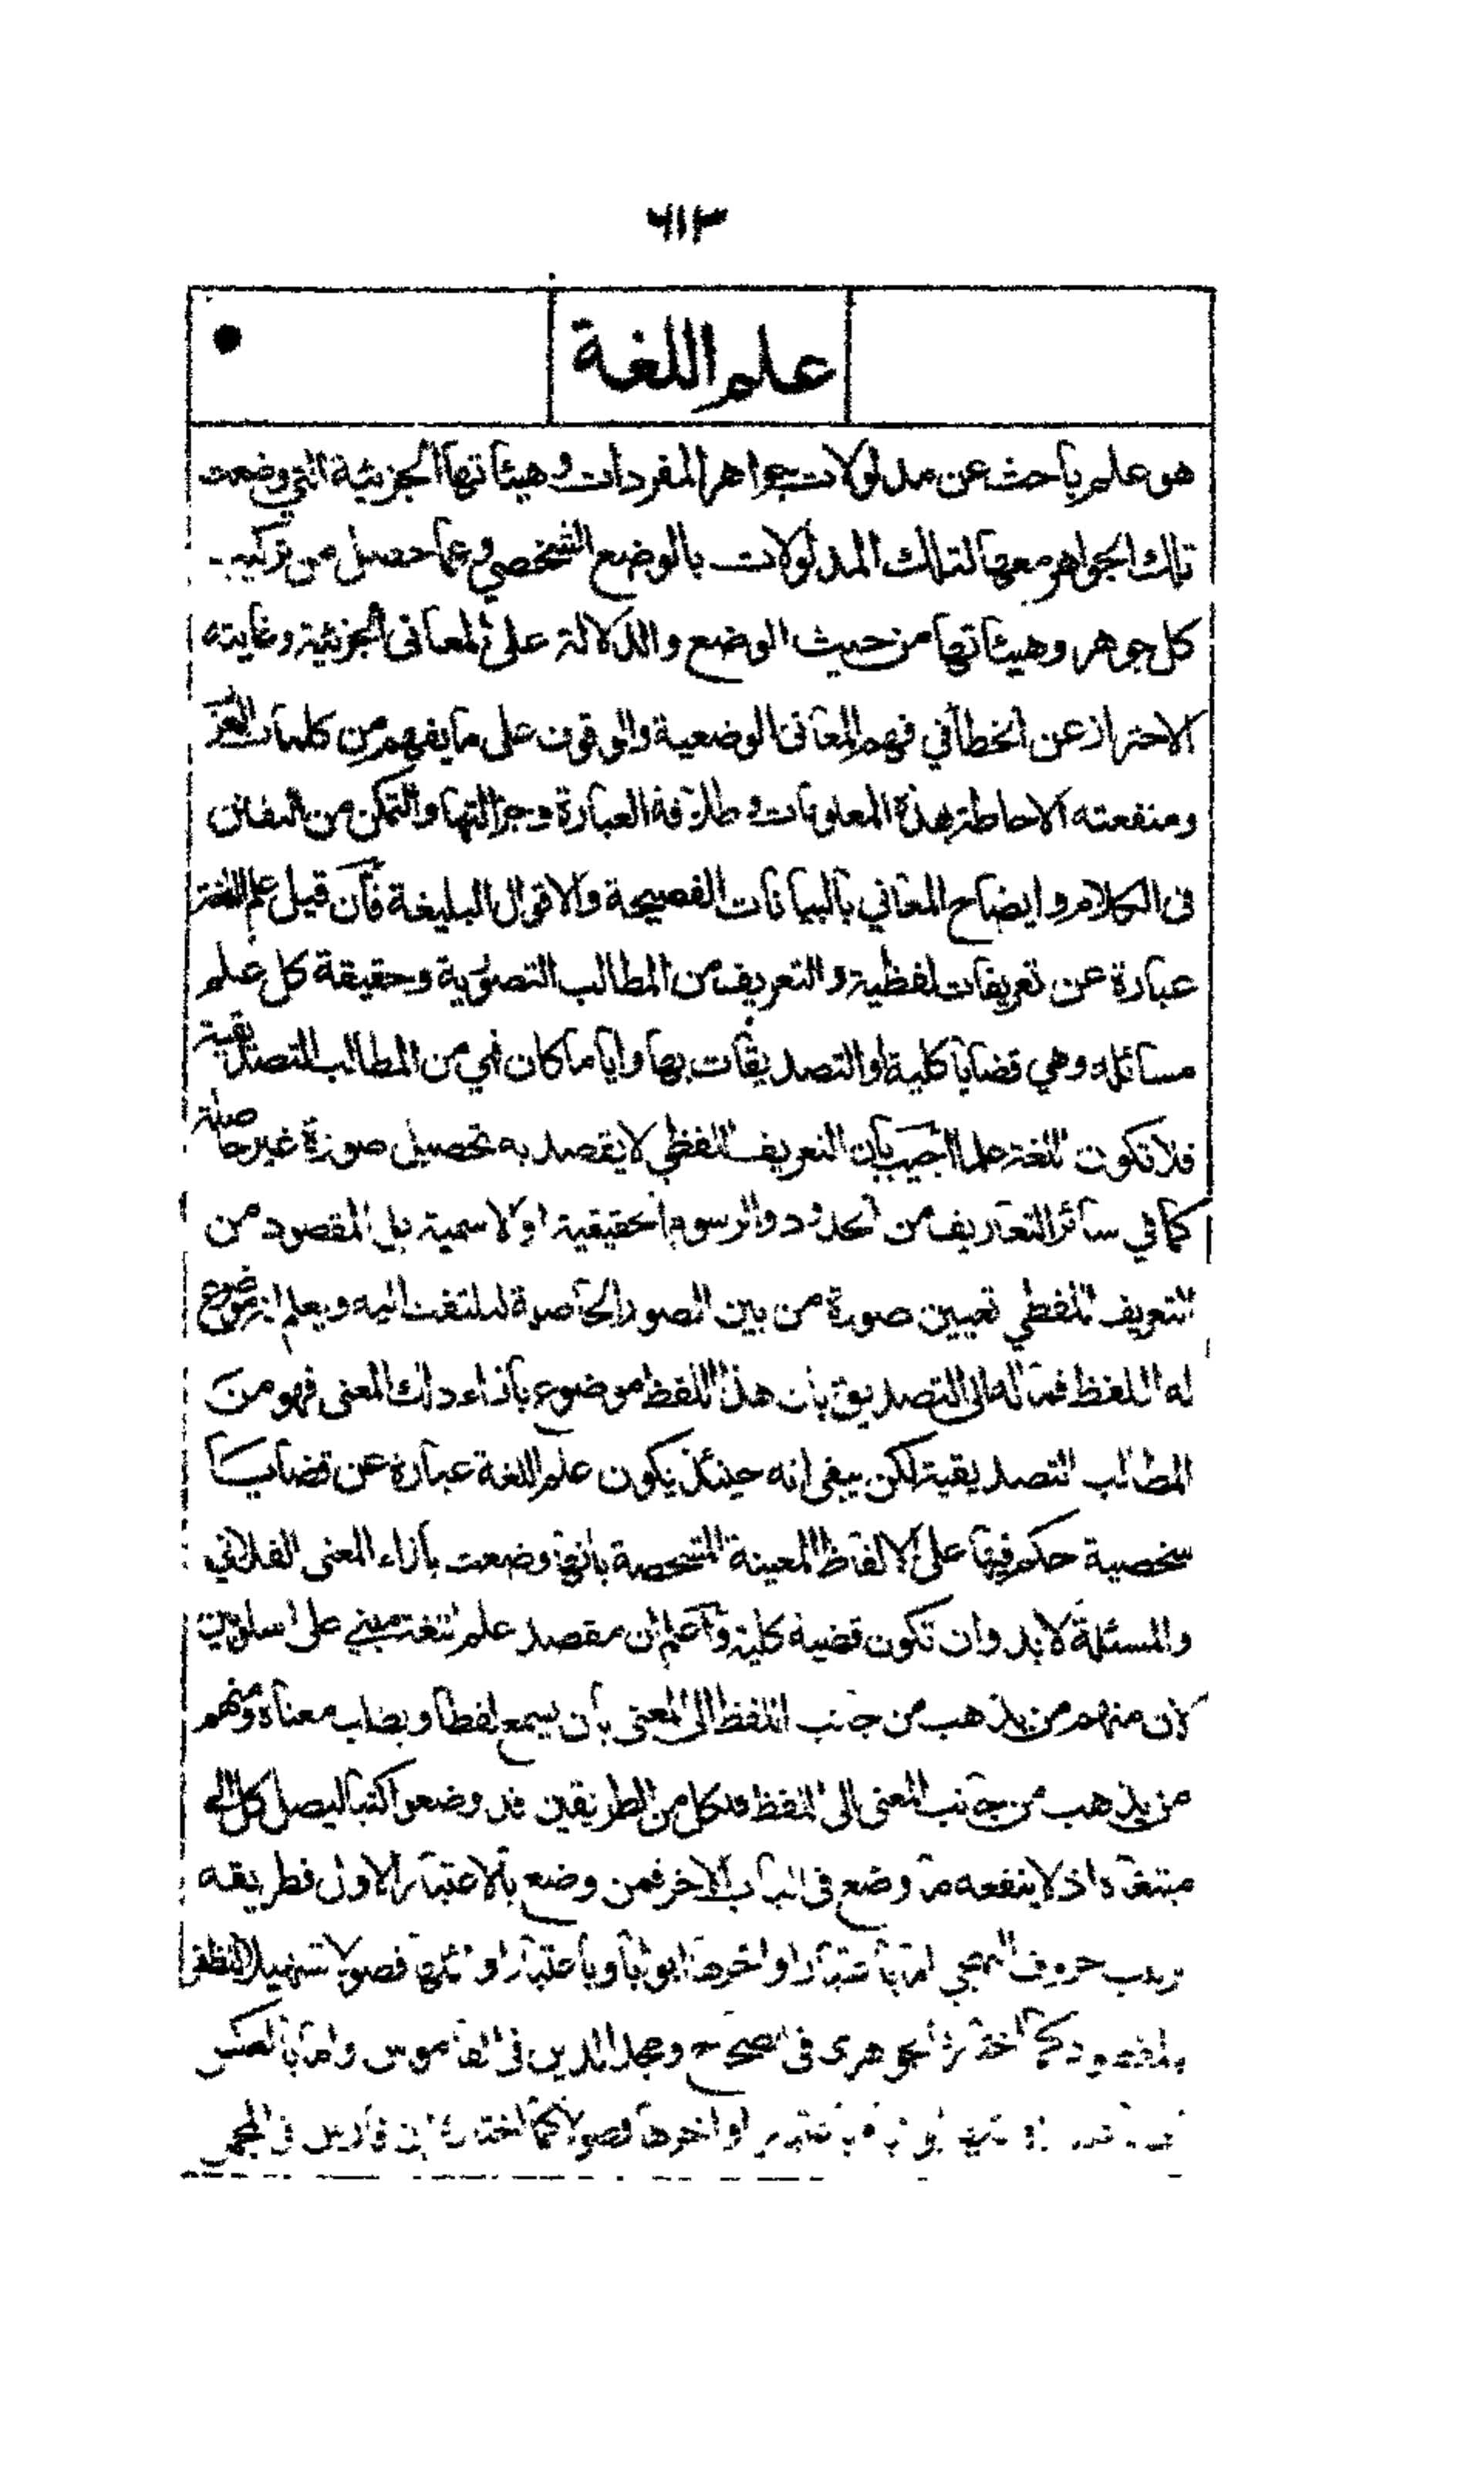 ٦١٣
علم اللغة
هو علم باحث عن مدلولات جواهر المفردات وهيئاتها الجزئية التي وضعت
تلك الجواهر معها لتلك المدلولات بالوضع الشخصي وعما حصل من تركيب
كل جوهر وهيئاتها من حيث الوضع والدلالة على المعاني الجزئية وغايته
الاحتراز عن الخطأ في فهم المعاني الوضعية والوقوف على ما يفهم من كلمات العرب
ومنفعته الاحاطة بهذه المعلومات وطلاقة العبارة وجزالتها والتمكن من التفنن
فى الكلام وايضاح المعاني بالبيانات الفصيحة والاقوال البليغة فان قيل علم اللغة
عبارة عن تعريفات لفظية والتعريف من المطالب التصورية وحقيقة كل علم
مسائله وهي قضايا كلية او التصديقات بها وايا ما كان فهي من المطالب التصديقية
فلا تكون اللغة علما اجيب بان التعريف اللفظي لا يقصد به تحصيل صورة غير حاصلة
كما في سائر التعاريف من الحدود والرسوم الحقيقية او الاسمية بل المقصود من
التعريف اللفظي تعيين صورة من بين الصور الحاصلة ليلتفت اليه ويعلم انه موضوع
له اللفظ فمآله الى التصديق بان هذا اللفظ موضوع بازاء ذلك المعنى فهو من
المطالب التصديقية لكن يبقى انه حينئذ يكون علم اللغة عبارة عن قضايا
شخصية حكم فيها على الالفاظ المعينة المشخصة بانها وضعت بازاء المعنى الفلاني
والمسئلة لا بد وان تكون قضية كلية واعلم ان مقصد علم اللغة مبني على اسلوبين
لان منهم من يذهب من جانب اللفظ الى المعنى بان يسمع لفظا ويطلب معناه ومنهم
من يذهب من جانب المعنى الى اللفظ فلكل من الطريقين قد وضعوا كتبا ليصل كل الى
مبتغاه اذ لا ينفعه ما وضع فى الباب الاخر فمن وضع بالاعتبار الاول فطريقه
ترتيب حروف التهجي اما باعتبار اواخرها ابوابا وباعتبار اوائلها فصولا تسهيلا للظفر
بالمقصود كما اختاره الجوهرى فى الصحاح ومجد الدين فى القاموس واما بالعكس
اواخرها فصولا كما اختاره ابن فارس فى المجمل